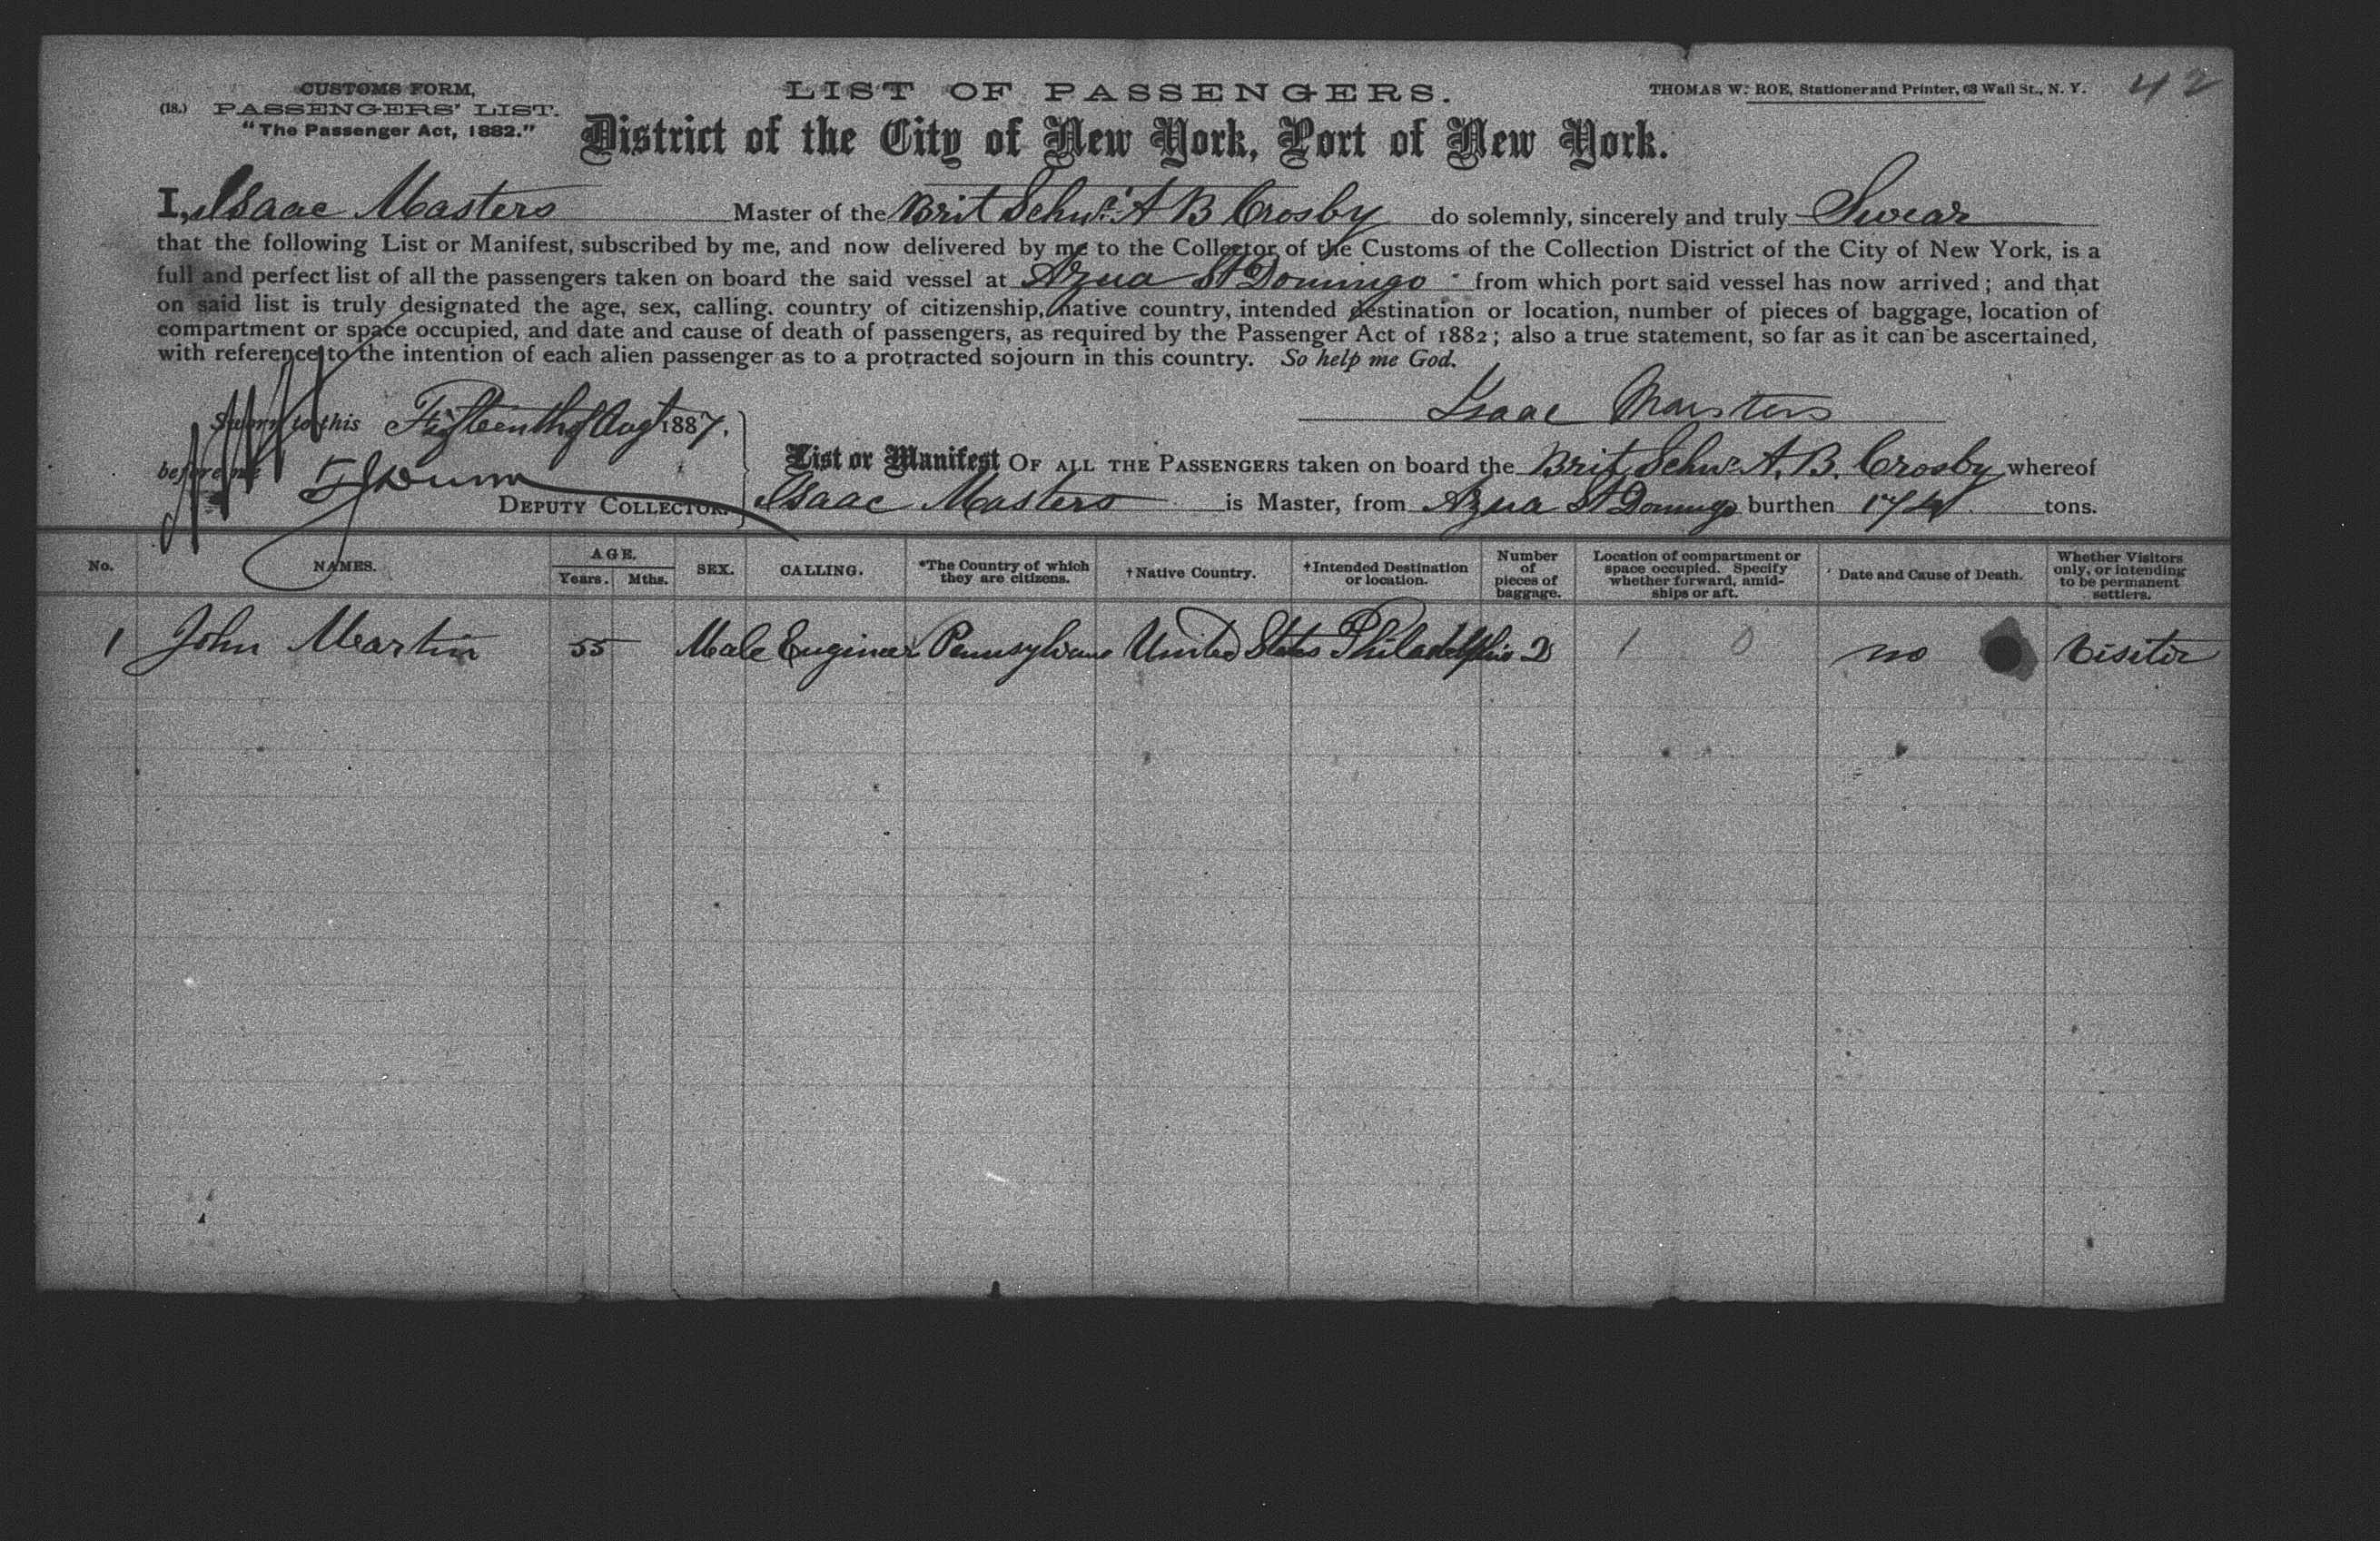 CUSTOMS FORM,
(18.) PASSENGERS' LIST.
"The Passenger Act, 1882."
LIST OF PASSENGERS.
THOMAS W. ROE, Stationer and Printer, 63 Wall St., N. Y.
42
District of the City of New York, Port of New York.
I, Isaac Masters Master of the Brit Schr. A B Crosby do solemnly, sincerely and truly Swear
that the following List or Manifest, subscribed by me, and now delivered by me to the Collector of the Customs of the Collection District of the City of New York, is a
full and perfect list of all the passengers taken on board the said vessel at Azua St Domingo from which port said vessel has now arrived; and that
on said list is truly designated the age, sex, calling, country of citizenship, native country, intended destination or location, number of pieces of baggage, location of
compartment or space occupied, and date and cause of death of passengers, as required by the Passenger Act of 1882; also a true statement, so far as it can be ascertained,
with reference to the intention of each alien passenger as to a protracted sojourn in this country. So help me God.
Isaac Marsters
Sworn to this Fifteenth of Aug 1887,
before me
DEPUTY COLLECTOR.
List or Manifest OF ALL THE PASSENGERS taken on board the Brit Schr. A. B. Crosby whereof
Isaac Masters is Master, from Azua St Domingo burthen 174 tons.
No. NAMES. AGE. Years. Mths. SEX. CALLING. *The Country of which they are citizens. †Native Country. †Intended Destination or location. Number of pieces of baggage. Location of compartment or space occupied. Specify whether forward, amidships or aft. Date and Cause of Death. Whether Visitors only, or intending to be permanent settlers.
1 John Martin 55 Male Engineer Pennsylvania United States Philadelphia 2 1 0 no Visitor